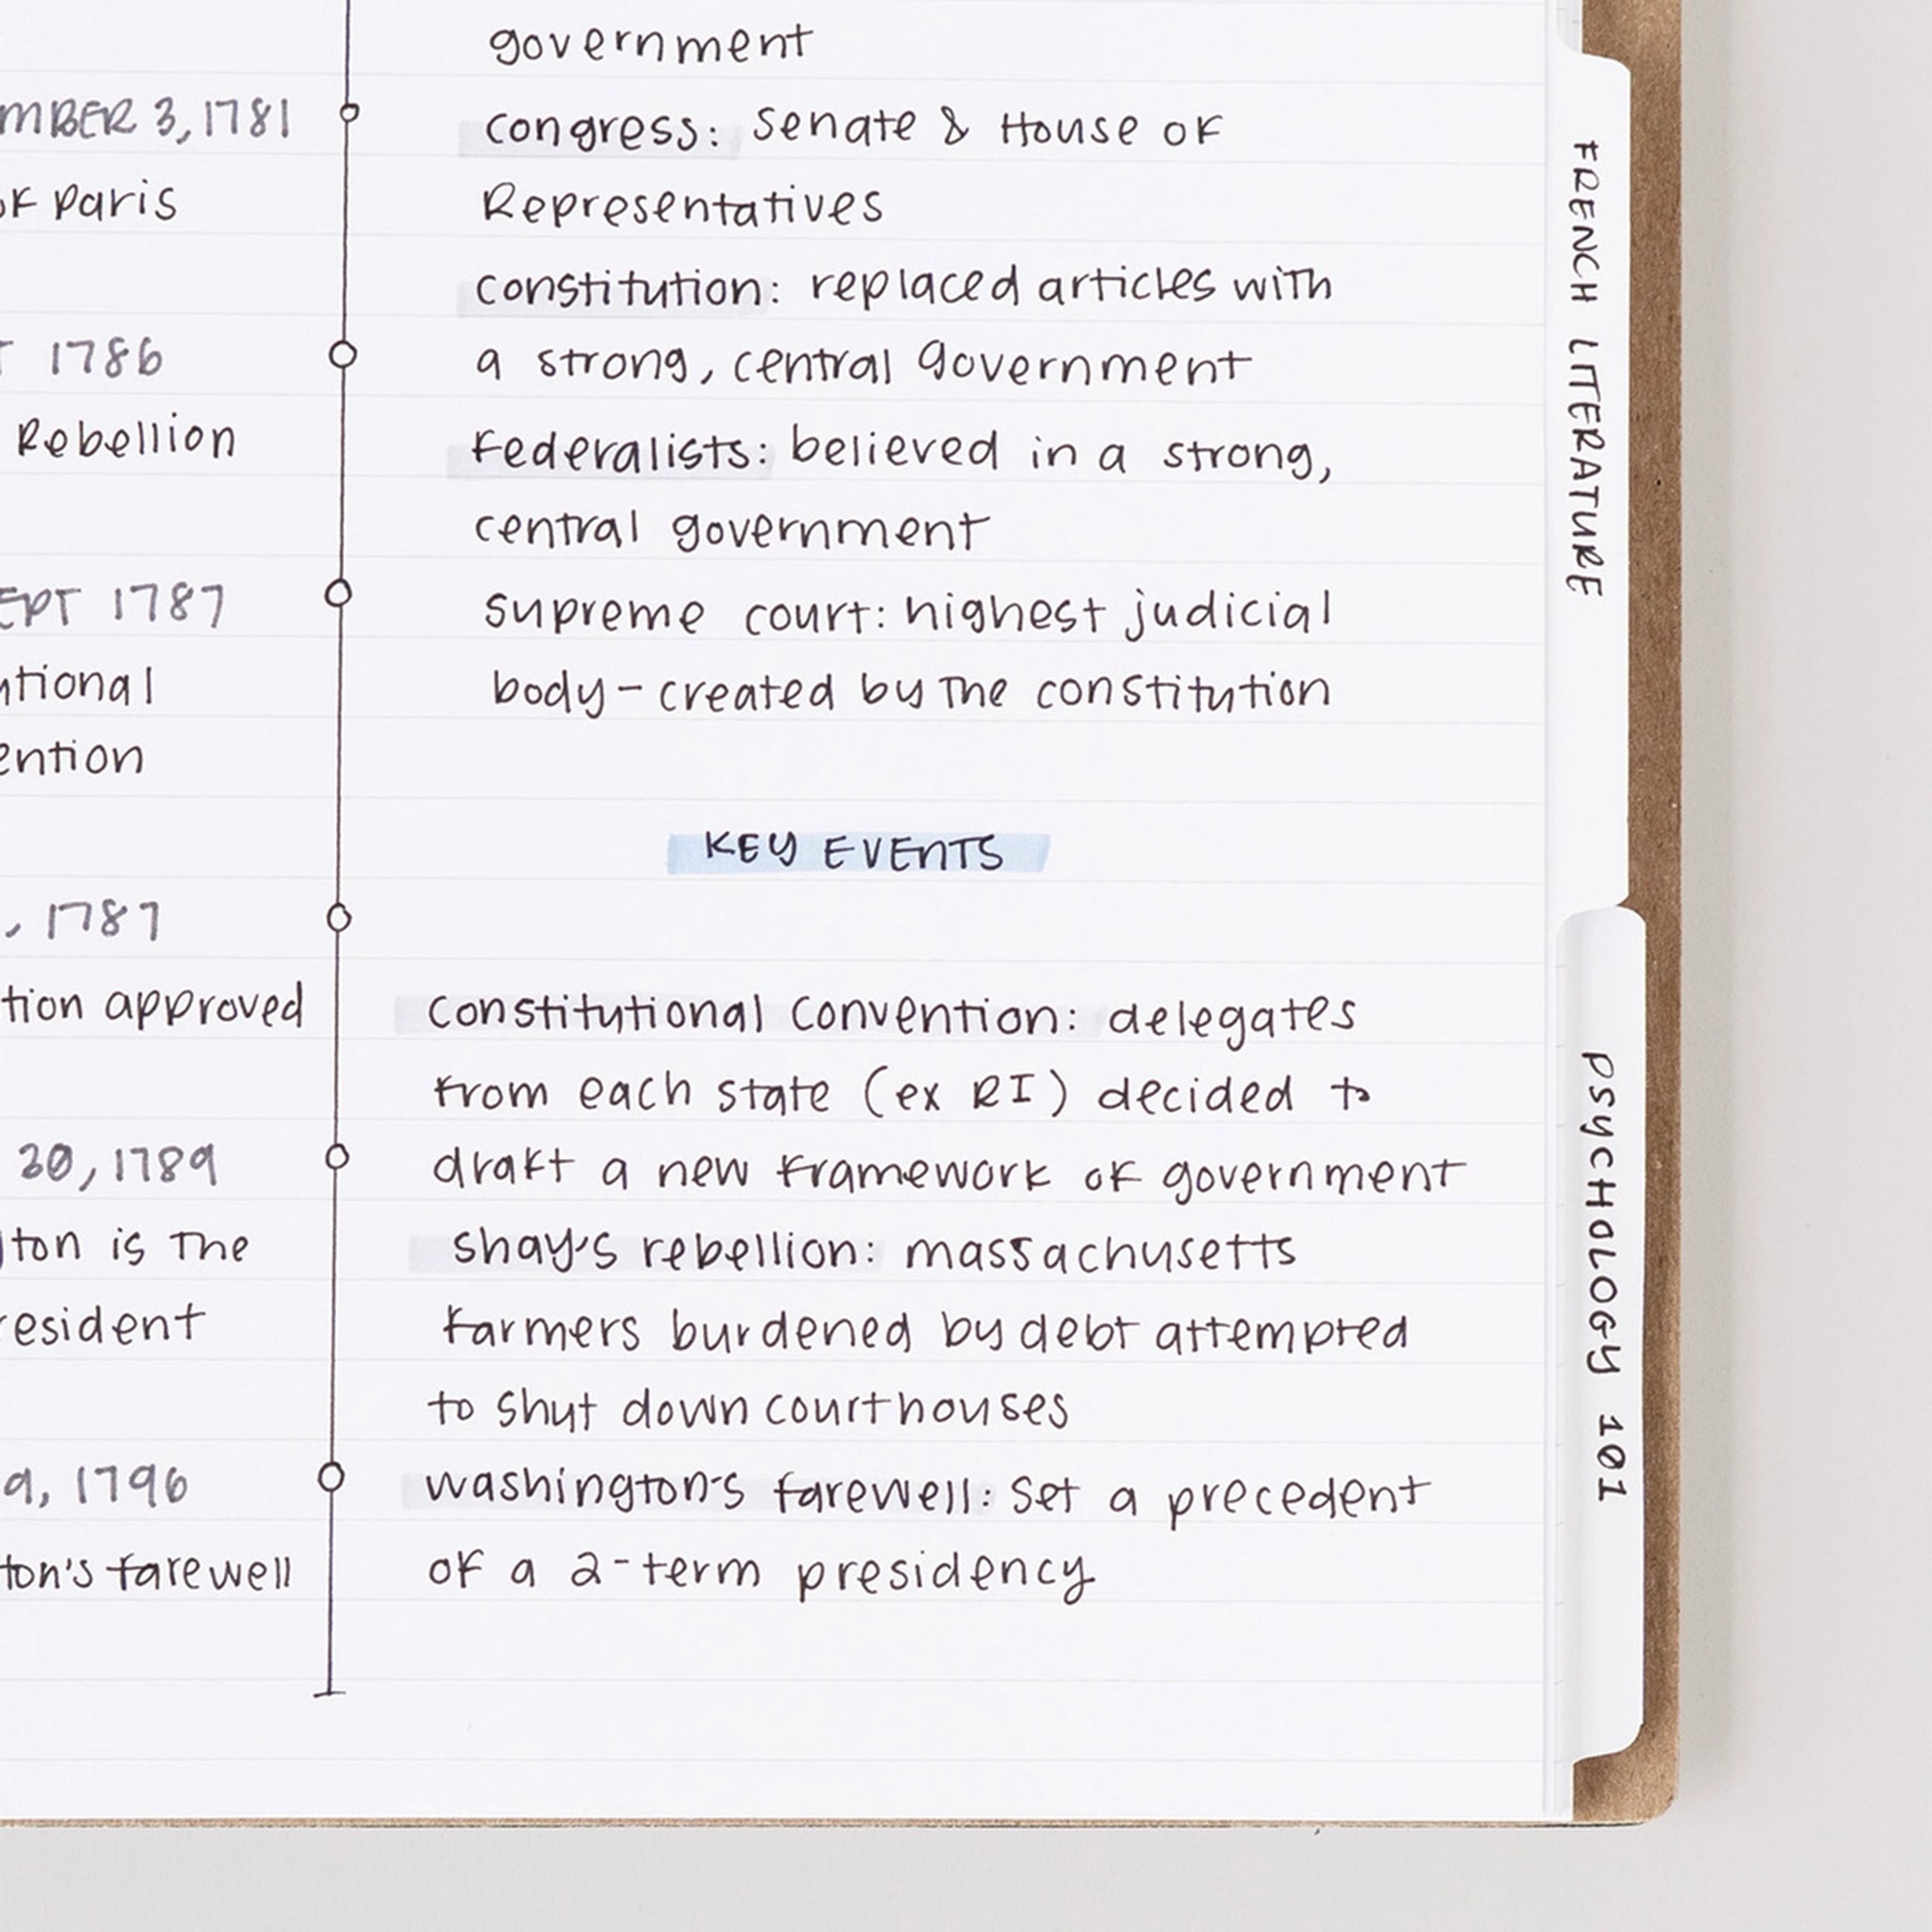 MBER 3, 1781
of Paris
T 1786
Rebellion
EPT 1787
ntional
ention
, 1787
tion approved
30, 1789
ton is The
resident
9, 1796
ton's farewell
government
congress: Senate & House of
Representatives
constitution: replaced articles with
a strong, central government
Federalists: believed in a strong,
central government
supreme court: highest judicial
body - created by The constitution
KEY EVENTS
Constitutional Convention: delegates
from each state (ex RI) decided to
draft a new framework of government
shay's rebellion: massachusetts
farmers burdened by debt attempted
to shut down courthouses
washington's farewell: set a precedent
of a 2-term presidency
FRENCH LITERATURE
PSYCHOLOGY 101